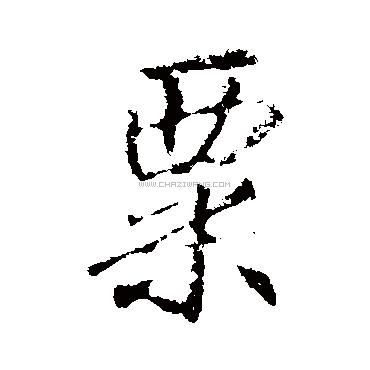 粟
WWW.CHAZIWANG.COM